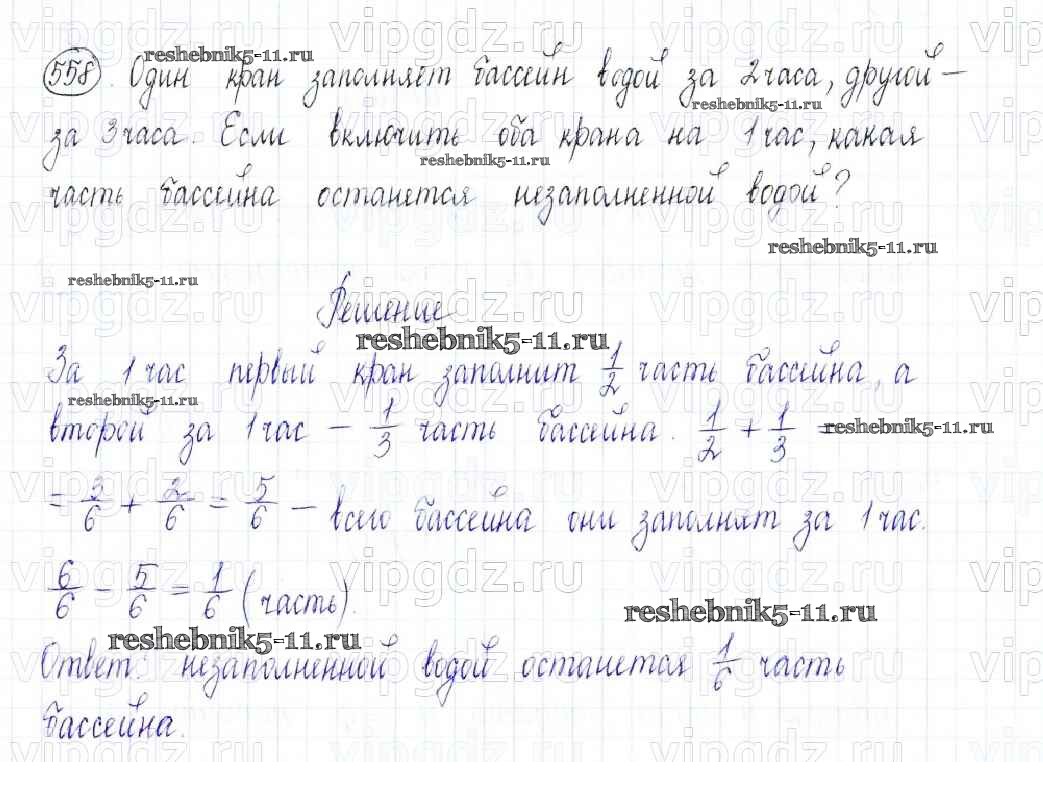 558. Один кран заполняет бассейн водой за 2 часа, другой –
за 3 часа. Если включить оба крана на 1 час, какая
часть бассейна останется незаполненной водой?
Решение
За 1 час первый кран заполнит 1/2 часть бассейна, а
второй за 1 час – 1/3 часть бассейна. 1/2 + 1/3 =
= 3/6 + 2/6 = 5/6 – всего бассейна они заполнят за 1 час.
6/6 – 5/6 = 1/6 (часть).
Ответ: незаполненной водой останется 1/6 часть
бассейна.
reshebnik5-11.ru
vipgdz.ru